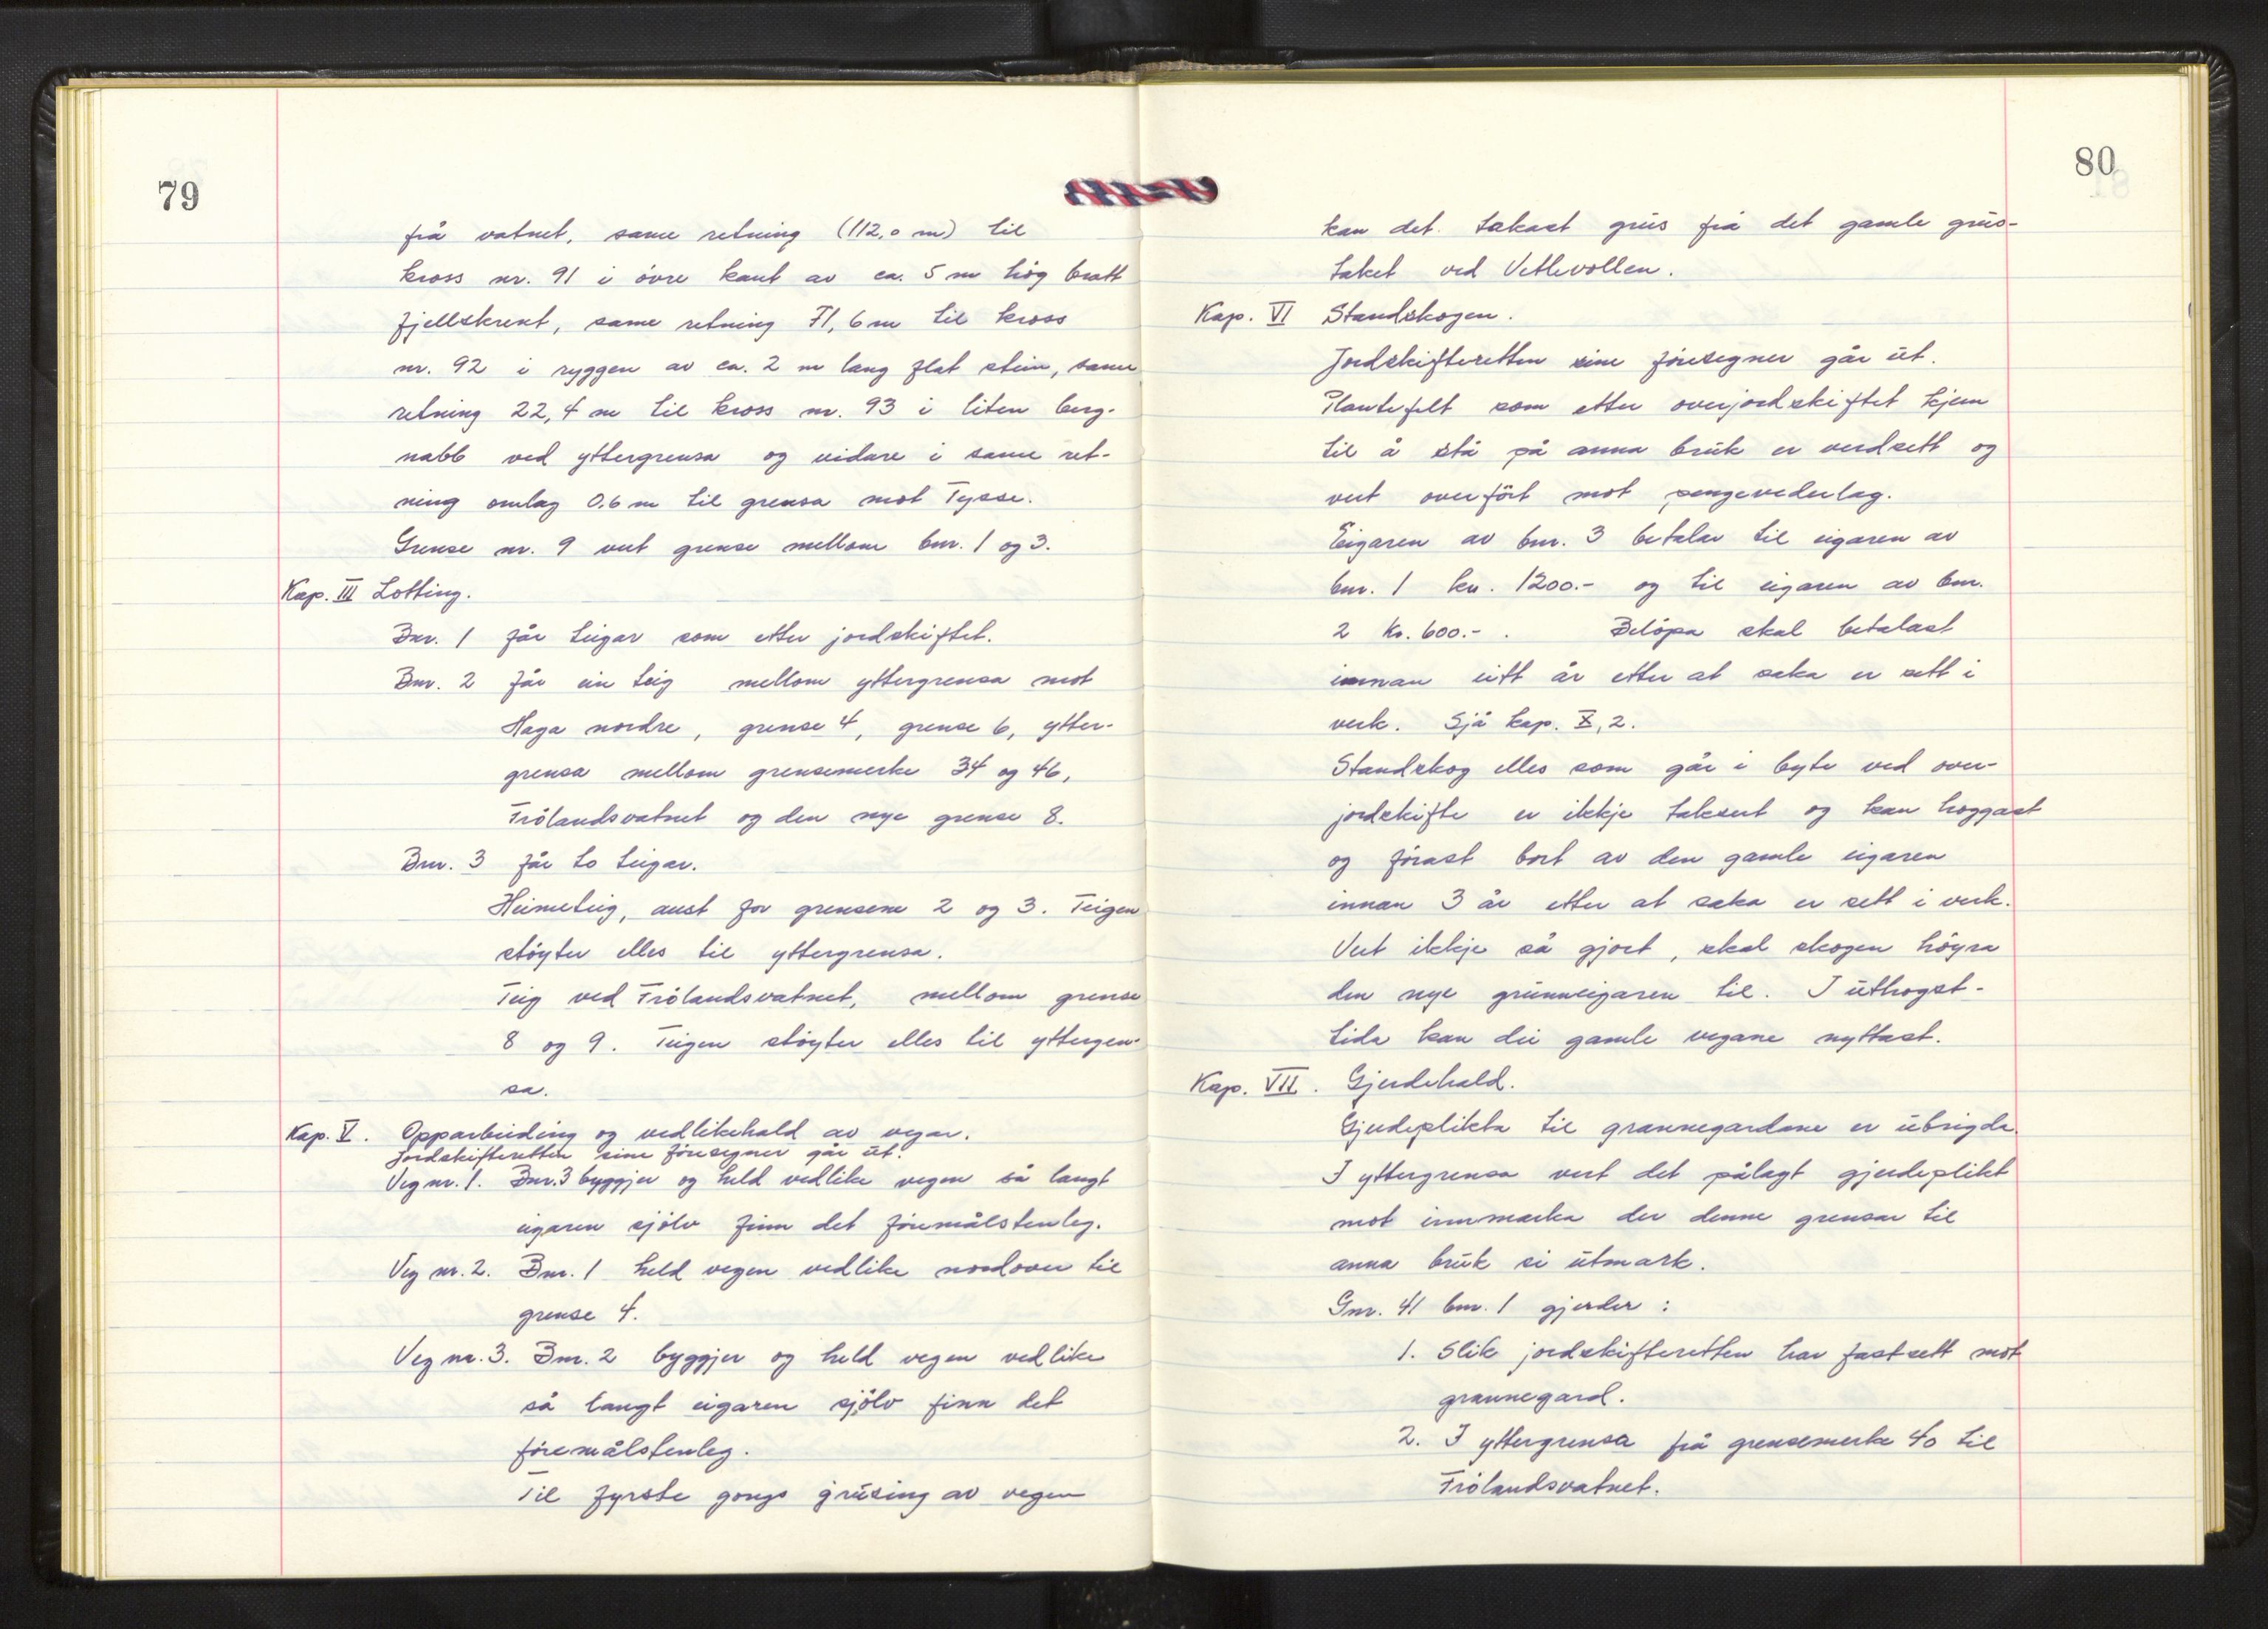 79
frå vatnet, same retning (112,0 m) til
kross nr. 91 i øvre kant av ca. 5 m høg bratt
fjellskrent, same retning 71,6 m til kross
nr. 92 i ryggen av ca. 2 m lang flat stein, same
retning 22,4 m til kross nr. 93 i liten berg-
nabb ved yttergrensa og vidare i same ret-
ning omlag 0,6 m til grensa mot Tysse.
Grense nr. 9 vert grense mellom bnr. 1 og 3.
Kap. III Lotting.
Bnr. 1 får teigar som etter jordskiftet.
Bnr. 2 får ein teig mellom yttergrensa mot
Haga nordre, grense 4, grense 6, ytter-
grensa mellom grensemerke 34 og 46,
Frølandsvatnet og den nye grense 8.
Bnr. 3 får to teigar.
Heimeteig, aust for grensene 2 og 3. Teigen
støyter elles til yttergrensa.
Teig ved Frølandsvatnet, mellom grense
8 og 9. Teigen støyter elles til yttergen-
sa.
Kap. V. Opparbeiding og vedlikehald av vegar.
Jordskifteretten sine føresegner går ut.
Veg nr. 1. Bnr. 3 byggjer og held vedlike vegen så langt
eigaren sjølv finn det føremålstenleg.
Veg nr. 2. Bnr. 1 held vegen vedlike nordover til
grense 4.
Veg nr. 3. Bnr. 2 byggjer og held vegen vedlike
så langt eigaren sjølv finn det
føremålstenleg.
Til fyrste gongs grusing av vegen
80
kan det takast grus frå det gamle grus-
taket ved Vetlevollen.
Kap. VI Standskogen.
Jordskifteretten sine føresegner går ut.
Plantefelt som etter overjordskiftet kjem
til å stå på anna bruk er verdsett og
vert overført mot pengevederlag.
Eigaren av bnr. 3 betalar til eigaren av
bnr. 1 kr. 1200.- og til eigaren av bnr.
2 kr. 600.- . Beløpa skal betalast
innan eitt år etter at saka er sett i
verk. Sjå kap. X, 2.
Standskog elles som går i byte ved over-
jordskifte er ikkje taksert og kan hoggast
og førast bort av den gamle eigaren
innan 3 år etter at saka er sett i verk.
Vert ikkje så gjort, skal skogen høyra
den nye grunneigaren til. I uthogst-
tida kan dei gamle vegane nyttast.
Kap. VII. Gjerdehald.
Gjerdeplikta til grannegardane er ubrigda.
I yttergrensa vert det pålagt gjerdeplikt
mot innmarka der denne grensar til
anna bruk si utmark.
Gnr. 41 bnr. 1 gjerder :
1. Slik jordskifteretten har fastsett mot
grannegard.
2. I yttergrensa frå grensemerke 40 til
Frølandsvatnet.